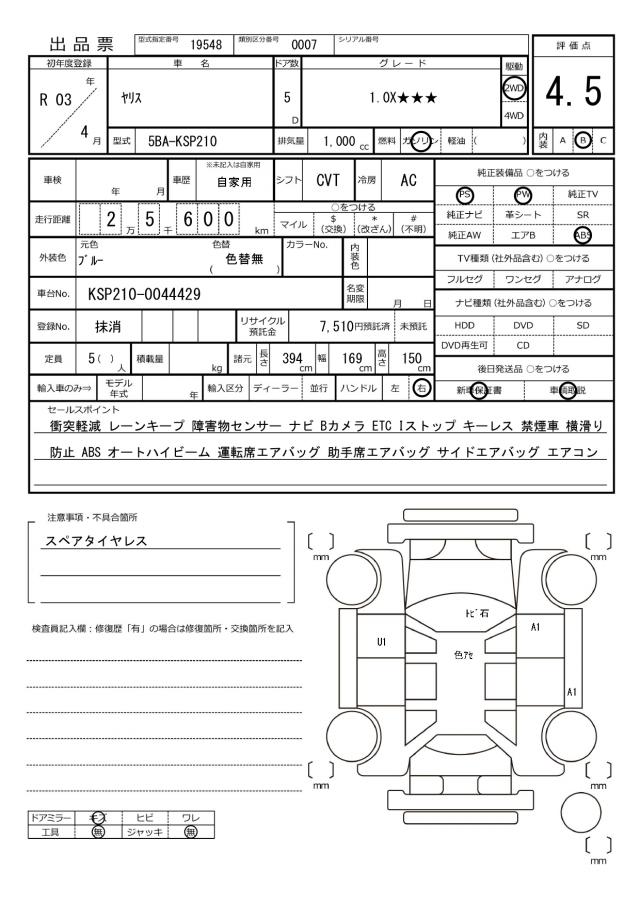 出品票 型式指定番号 19548 類別区分番号 0007 シリアル番号
初年度登録 車名 ドア数 グレード 駆動 評価点
R 03 年 4 月 ヤリス 5 D 1.0X★★★ 2WD 4WD 4.5
型式 5BA-KSP210 排気量 1,000 cc 燃料 ガソリン 軽油 ( ) 内装 A B C
車検 年 月 車歴 ※未記入は自家用 自家用 シフト CVT 冷房 AC 純正装備品 ○をつける
PS PW 純正TV
走行距離 2 万 5 千 6 0 0 km ○をつける マイル $ (交換) * (改ざん) # (不明) 純正ナビ 革シート SR
純正AW エアB ABS
外装色 元色 ブルー 色替 ( 色替無 ) カラーNo. 内装色 TV種類 (社外品含む) ○をつける
フルセグ ワンセグ アナログ
車台No. KSP210-0044429 名変期限 月 日 ナビ種類 (社外品含む) ○をつける
登録No. 抹消 リサイクル預託金 7,510円預託済 未預託 HDD DVD SD
DVD再生可 CD
定員 5 ( ) 人 積載量 kg 諸元 長さ 394 cm 幅 169 cm 高さ 150 cm 後日発送品 ○をつける
輸入車のみ⇒ モデル年式 年 輸入区分 ディーラー 並行 ハンドル 左 右 新車保証書 車輌取説
セールスポイント
衝突軽減 レーンキープ 障害物センサー ナビ Bカメラ ETC Iストップ キーレス 禁煙車 横滑り
防止 ABS オートハイビーム 運転席エアバッグ 助手席エアバッグ サイドエアバッグ エアコン
注意事項・不具合箇所
スペアタイヤレス
検査員記入欄：修復歴「有」の場合は修復箇所・交換箇所を記入
mm mm
トビ石
U1 A1
色アセ
A1
mm mm
mm
ドアミラー キズ ヒビ ワレ
工具 無 ジャッキ 無